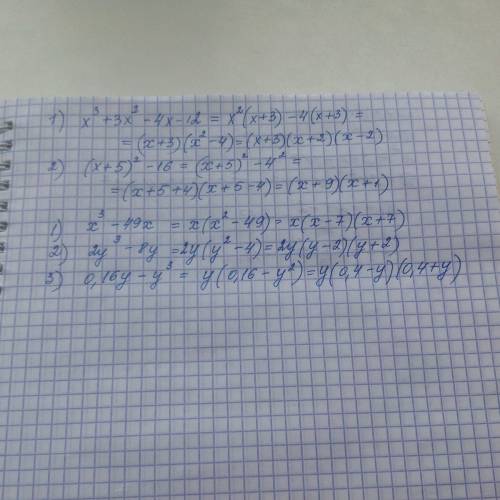 1) x³ + 3x² - 4x - 12 = x²(x+3) - 4(x+3) =
= (x+3)(x² - 4) = (x+3)(x+2)(x-2)
2) (x+5)² - 16 = (x+5)² - 4² =
= (x+5+4)(x+5-4) = (x+9)(x+1)
1) x³ - 49x = x(x² - 49) = x(x-7)(x+7)
2) 2y³ - 8y = 2y(y² - 4) = 2y(y-2)(y+2)
3) 0,16y - y³ = y(0,16 - y²) = y(0,4-y)(0,4+y)